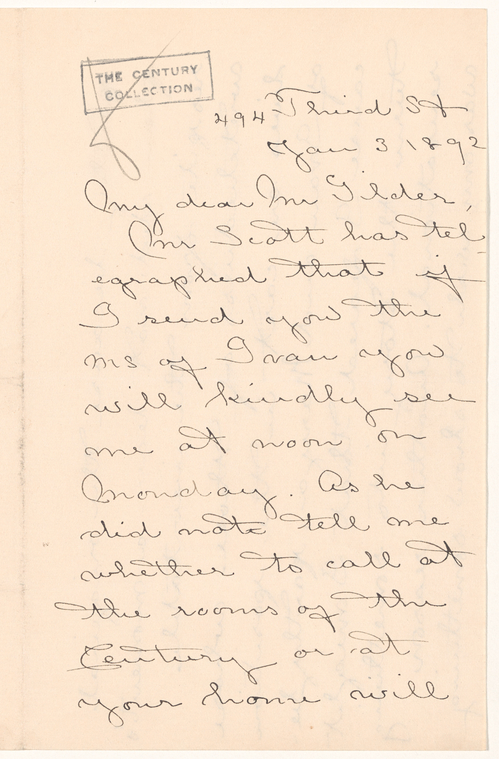 THE CENTURY
COLLECTION
494 Third St
Jan 3 1892
My dear Mr Gilder,
Mr Scott has tel-
egraphed that if
I send you the
ms of Ivan you
will kindly see
me at noon on
Monday. As he
did not tell me
whether to call at
the rooms of the
Century or at
your home will